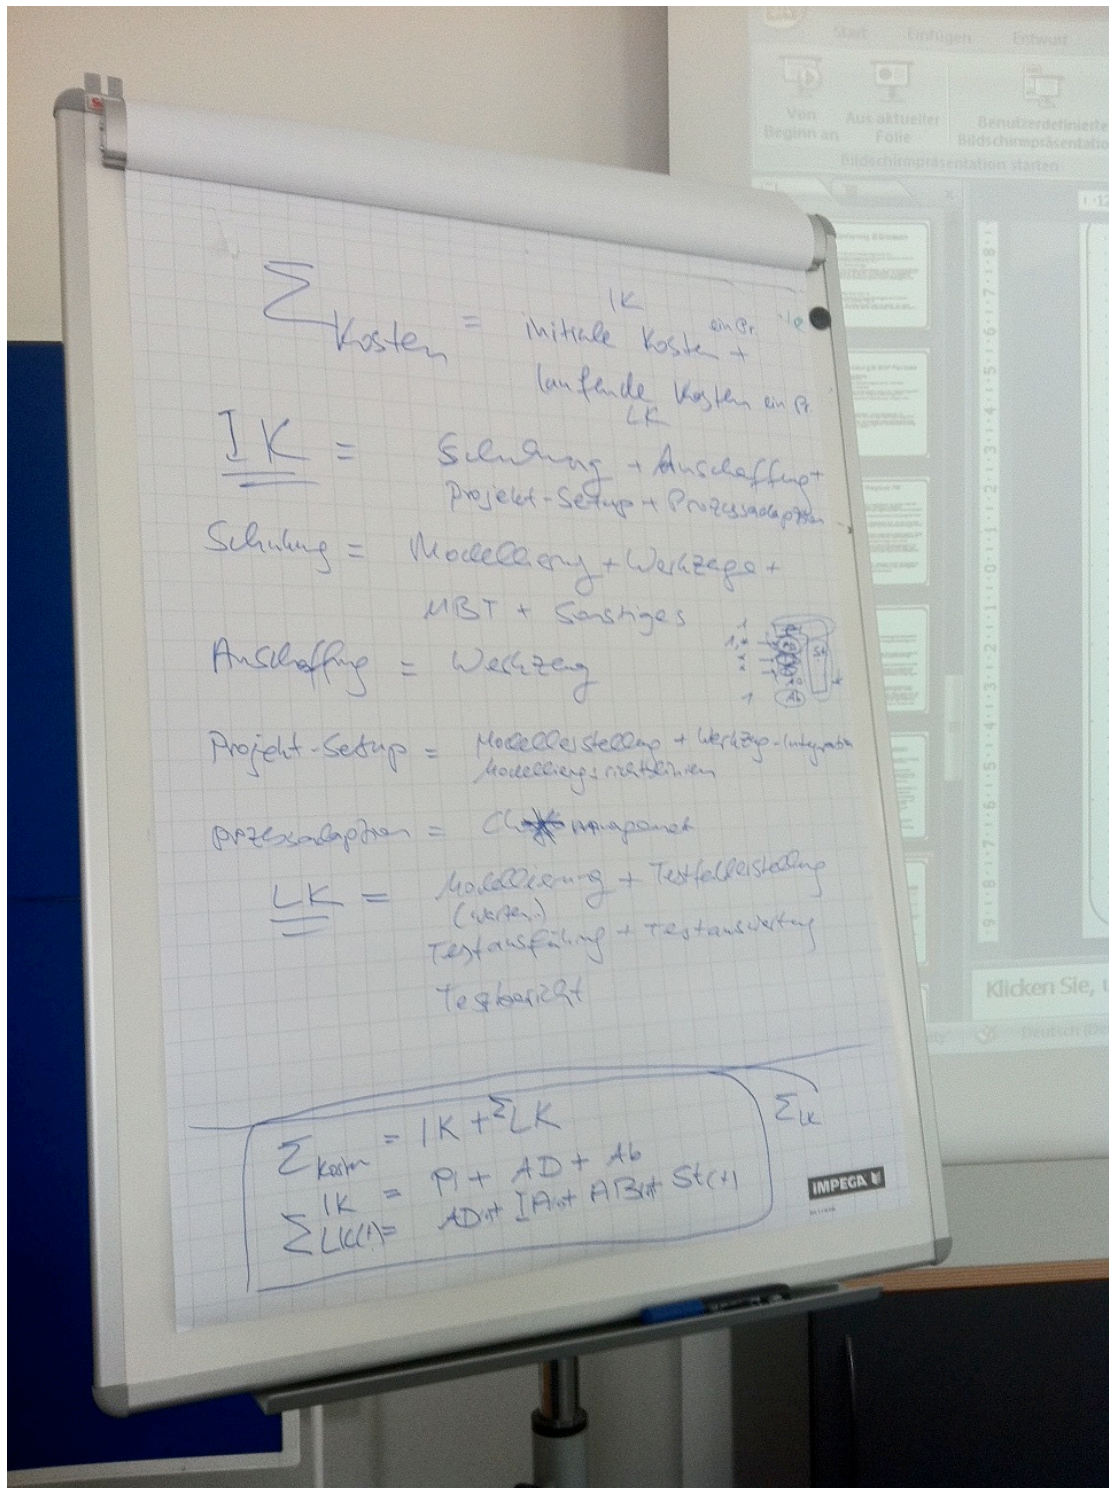 Start Einfügen Entwurf
Von Beginn an
Aus aktueller Folie
Benutzerdefinierte Bildschirmpräsentation
Bildschirmpräsentation starten
IK
Σ Kosten = initiale Kosten ein Pr. +
laufende Kosten ein Pr.
LK
IK = Schulung + Anschaffung +
Projekt-Setup + Prozessadaption
Schulung = Modellierung + Werkzeuge +
MBT + Sonstiges
Anschaffung = Werkzeug
Projekt-Setup = Modellerstellung + Werkzeug-Integration
Modellierungsrichtlinien
Prozessadaption = management
LK = Modellierung + Testfallerstellung
(warten..)
Testausführung + Testauswertung
Testbericht
Σ LK
Σ Kosten = IK + Σ LK
IK = PI + AD + Ab
Σ LK(t) = AD(t)+ IA(t)+ AB(t)+ St(t)
IMPEGA
Klicken Sie, u
Deutsch (De